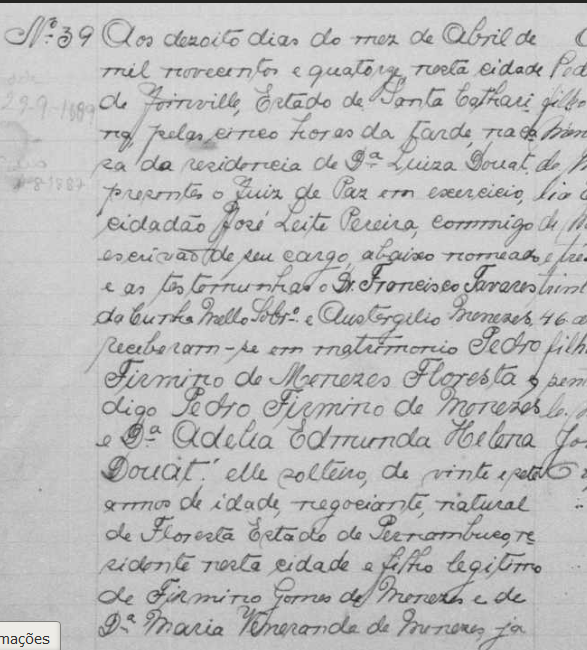 Nº 39 Aos dezoito dias do mez de Abril de
mil novecentos e quatorze, nesta cidade
de Joinville, Estado de Santa Cathari
na, pelas cinco horas da tarde, na ca
sa da residencia de Dª Luiza Douat,
presentes o Juiz de Paz em exercicio,
cidadão José Leite Pereira, commigo
escrivão de seu cargo, abaixo nomeado
e as testemunhas o Dr. Francisco Tavares
da Cunha Mello Sobrº e Austergilio Menezes,
receberam-se em matrimonio Pedro
Firmino de Menezes Floresta
digo Pedro Firmino de Menezes
e Dª Adelia Edmunda Helena
Douat: elle solteiro, de vinte e sete
annos de idade, negociante, natural
de Floresta Estado de Pernambuco, re
sidente nesta cidade e filho legitimo
de Firmino Gomes de Menezes e de
Dª Maria Veneranda de Menezes, ja
29-9-1889
8-1887
46
mações